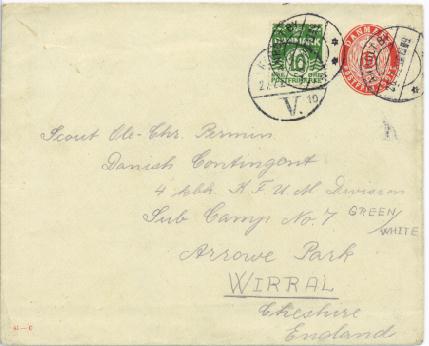 DANMARK
10
POSTFRIMÆRKE
DANMARK
V.
10
Scout Ole-Chr. Bermin
Danish Contingent
4 K F U M Division
Sub Camp No. 7 GREEN/
WHITE
Arrowe Park
WIRRAL
Cheshire
England